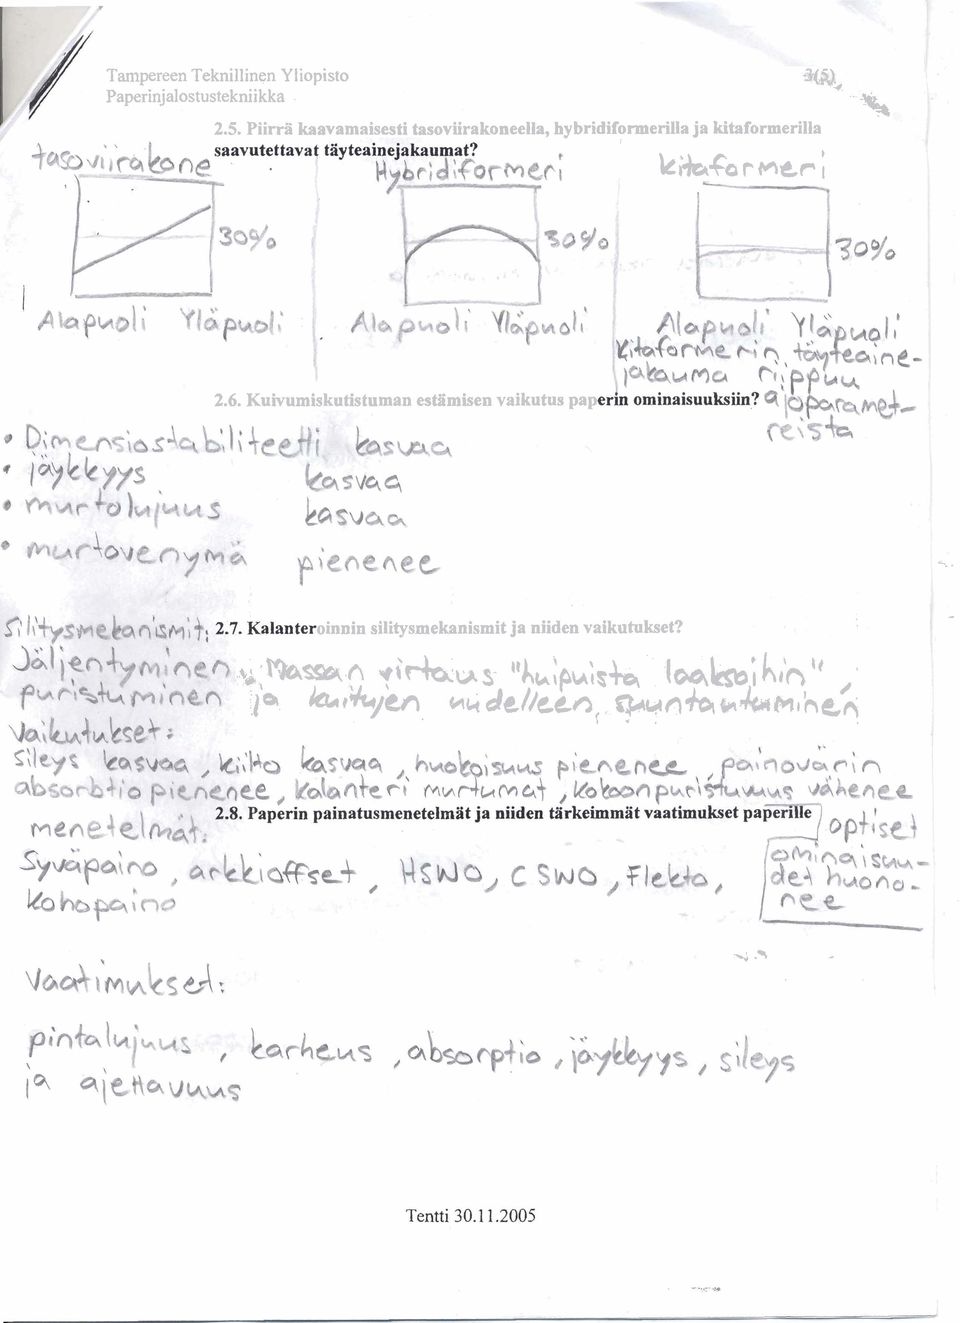 Tampereen Teknillinen Yliopisto 3(5)
Paperinjalostustekniikka
2.5. Piirrä kaavamaisesti tasoviirakoneella, hybridiformerilla ja kitaformerilla
saavutettavat täyteainejakaumat?
tasoviirakone Hybridiformeri kitaformeri
30% 30% 30%
Alapuoli Yläpuoli Alapuoli Yläpuoli Alapuoli Yläpuoli
Kitaformerin täyteaine-
jakauma riippuu
ajoparamet-
reista
2.6. Kuivumiskutistuman estämisen vaikutus paperin ominaisuuksiin?
• Dimensiostabiliteetti kasvaa
• jäykkyys kasvaa
• murtolujuus kasvaa
• murtovenymä pienenee
2.7. Kalanteroinnin silitysmekanismit ja niiden vaikutukset?
Silitysmekanismit:
Jäljentyminen, Massan virtaus "huipuista laaksoihin",
puristuminen ja kuitujen uudelleen suuntautuminen
Vaikutukset:
sileys kasvaa, kiilto kasvaa, huokoisuus pienenee, painovärin
absorbtio pienenee, kalanteri murtumat, kokoonpuristuvuus vähenee
optiset
ominaisuu-
det huono-
nee
2.8. Paperin painatusmenetelmät ja niiden tärkeimmät vaatimukset paperille
menetelmät:
Syväpaino, arkkioffset, HSWO, CSWO, Flekto,
kohopaino
Vaatimukset:
pintalujuus, karheus, absorptio, jäykkyys, sileys
ja ajettavuus
Tentti 30.11.2005